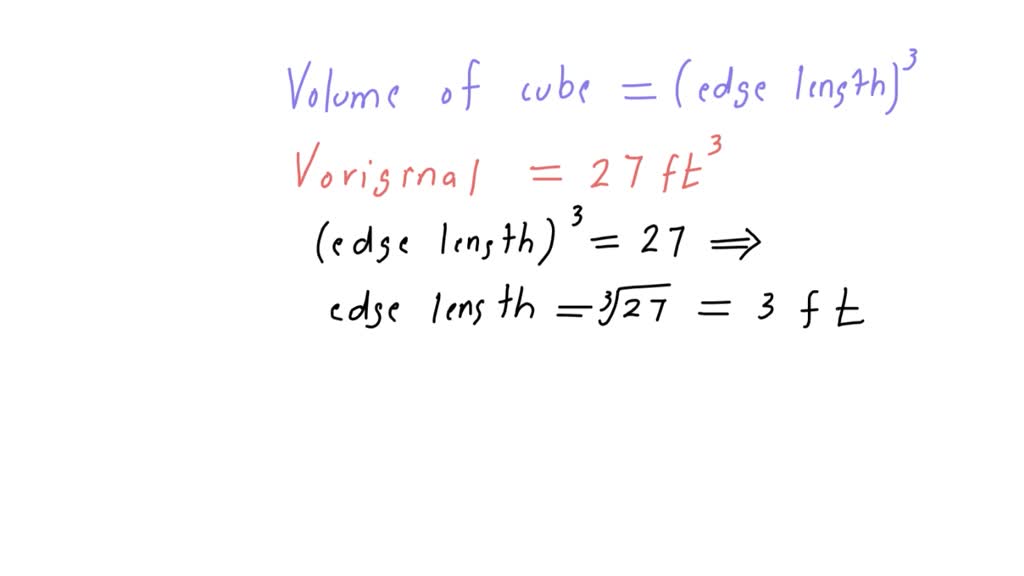 Volume of cube = (edge length)³
Vorisrnal = 27 ft³
(edge length)³ = 27 ⟹
edge length = ∛27 = 3 ft